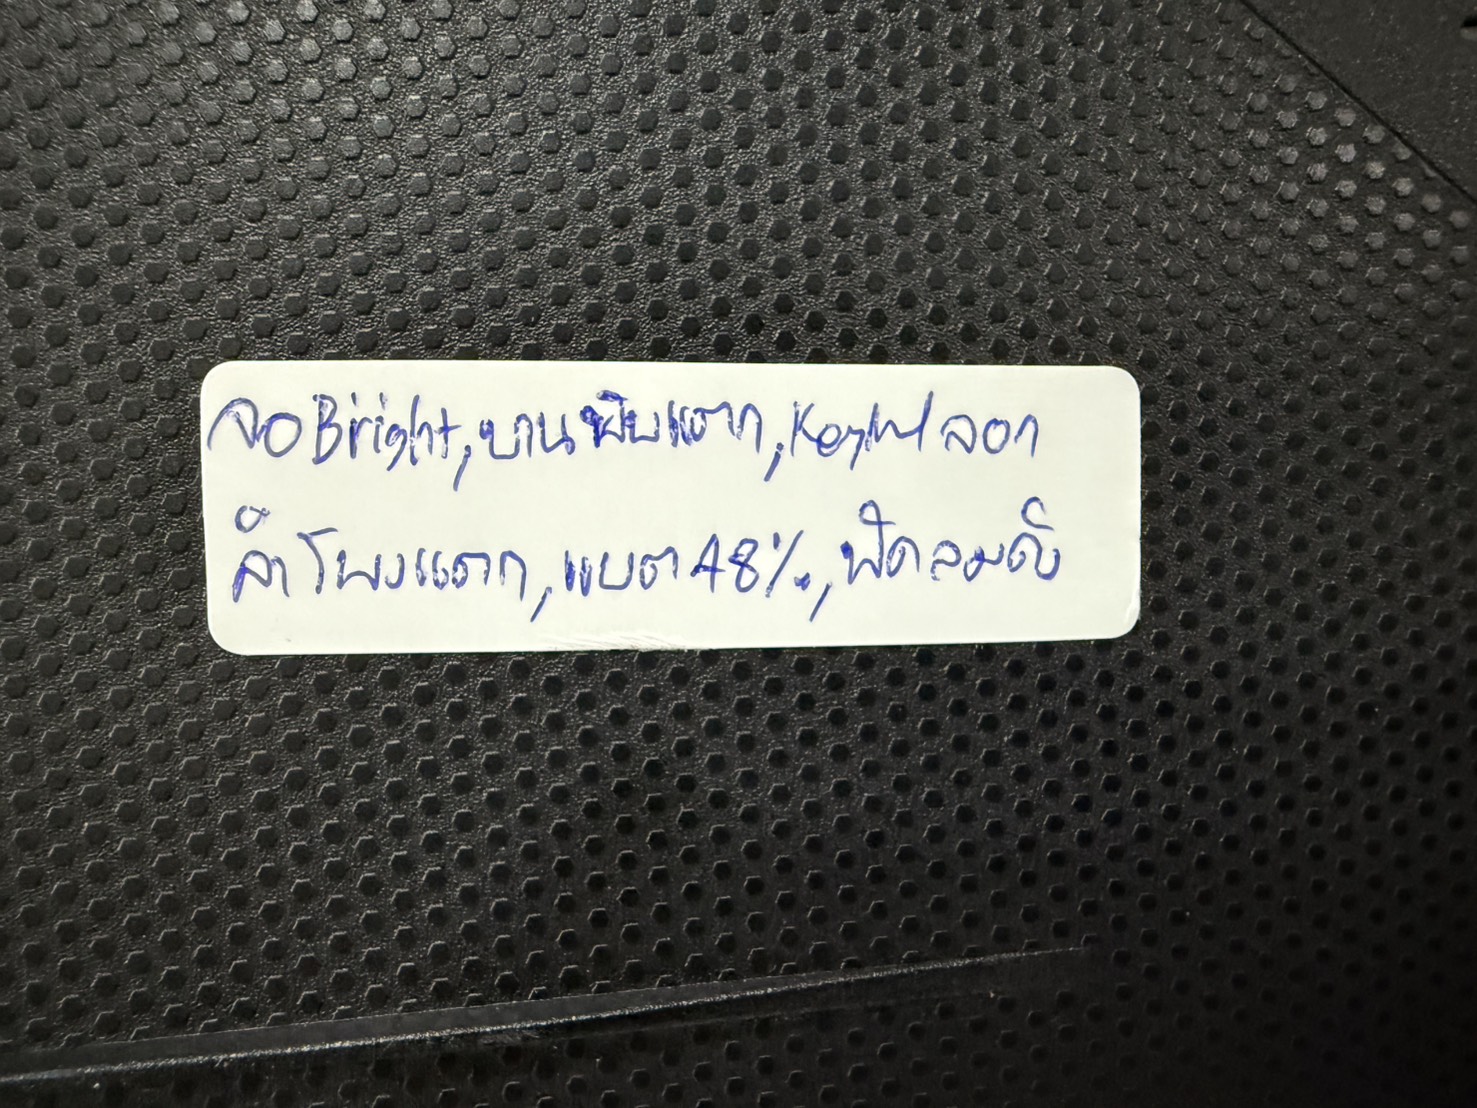 จอBright,บานพับแตก,Keyลอก
ลำโพงแตก,แบต48%,พัดลมดัง